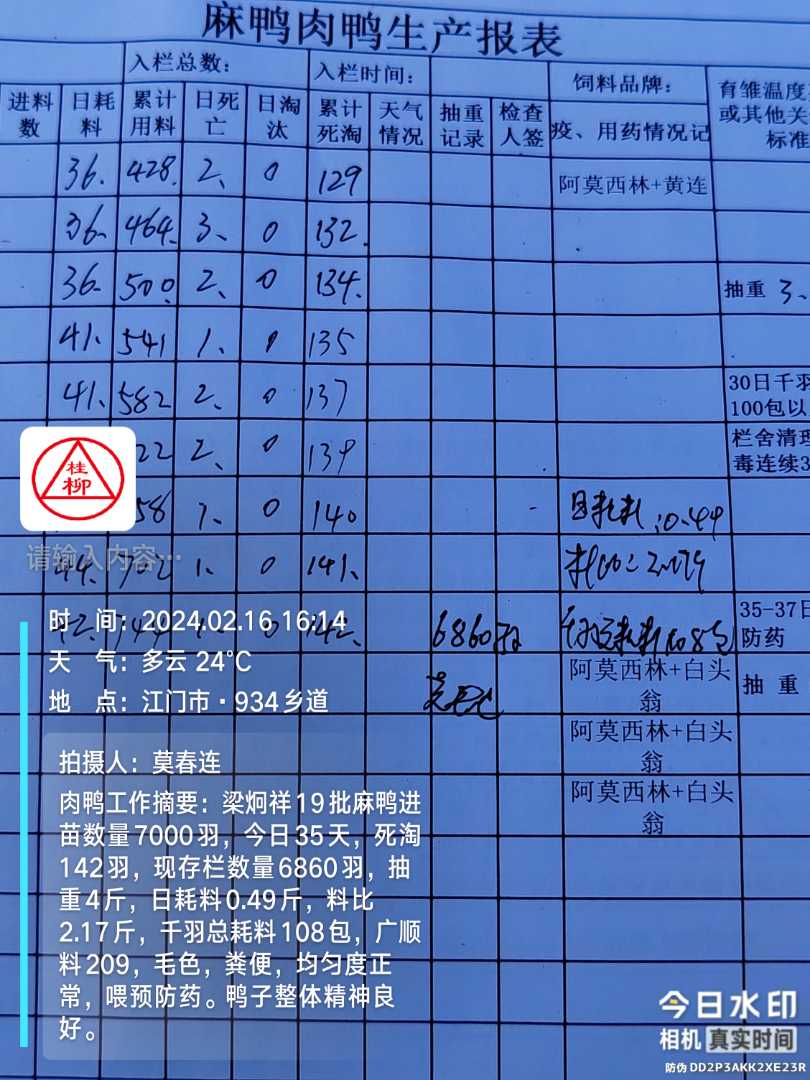 麻鸭肉鸭生产报表
入栏总数: 入栏时间: 饲料品牌: 育雏温度
进料数 日耗料 累计用料 日死亡 日淘汰 累计死淘 天气情况 抽重记录 检查人签 疫、用药情况记 或其他关 标准
36. 428. 2、 0 129 阿莫西林+黄连
36. 464. 3、 0 132.
36. 500. 2、 0 134. 抽重 3、
41. 541 1、 0 135
41. 582 2、 0 137 30日千羽
100包以
22 2、 0 139 栏舍清理
毒连续3
桂柳
58 1、 0 140 日耗料:0.44
请输入内容…
44. 702 1、 0 141、
6860羽 35-37日
防药
阿莫西林+白头翁 抽 重
阿莫西林+白头翁
阿莫西林+白头翁
时 间:2024.02.16 16:14
天 气:多云 24°C
地 点:江门市·934乡道
拍摄人:莫春连
肉鸭工作摘要:梁炯祥19批麻鸭进
苗数量7000羽，今日35天，死淘
142羽，现存栏数量6860羽，抽
重4斤，日耗料0.49斤，料比
2.17斤，千羽总耗料108包，广顺
料209，毛色，粪便，均匀度正
常，喂预防药。鸭子整体精神良
好。
今日水印
相机 真实时间
防伪 DD2P3AKK2XE23R